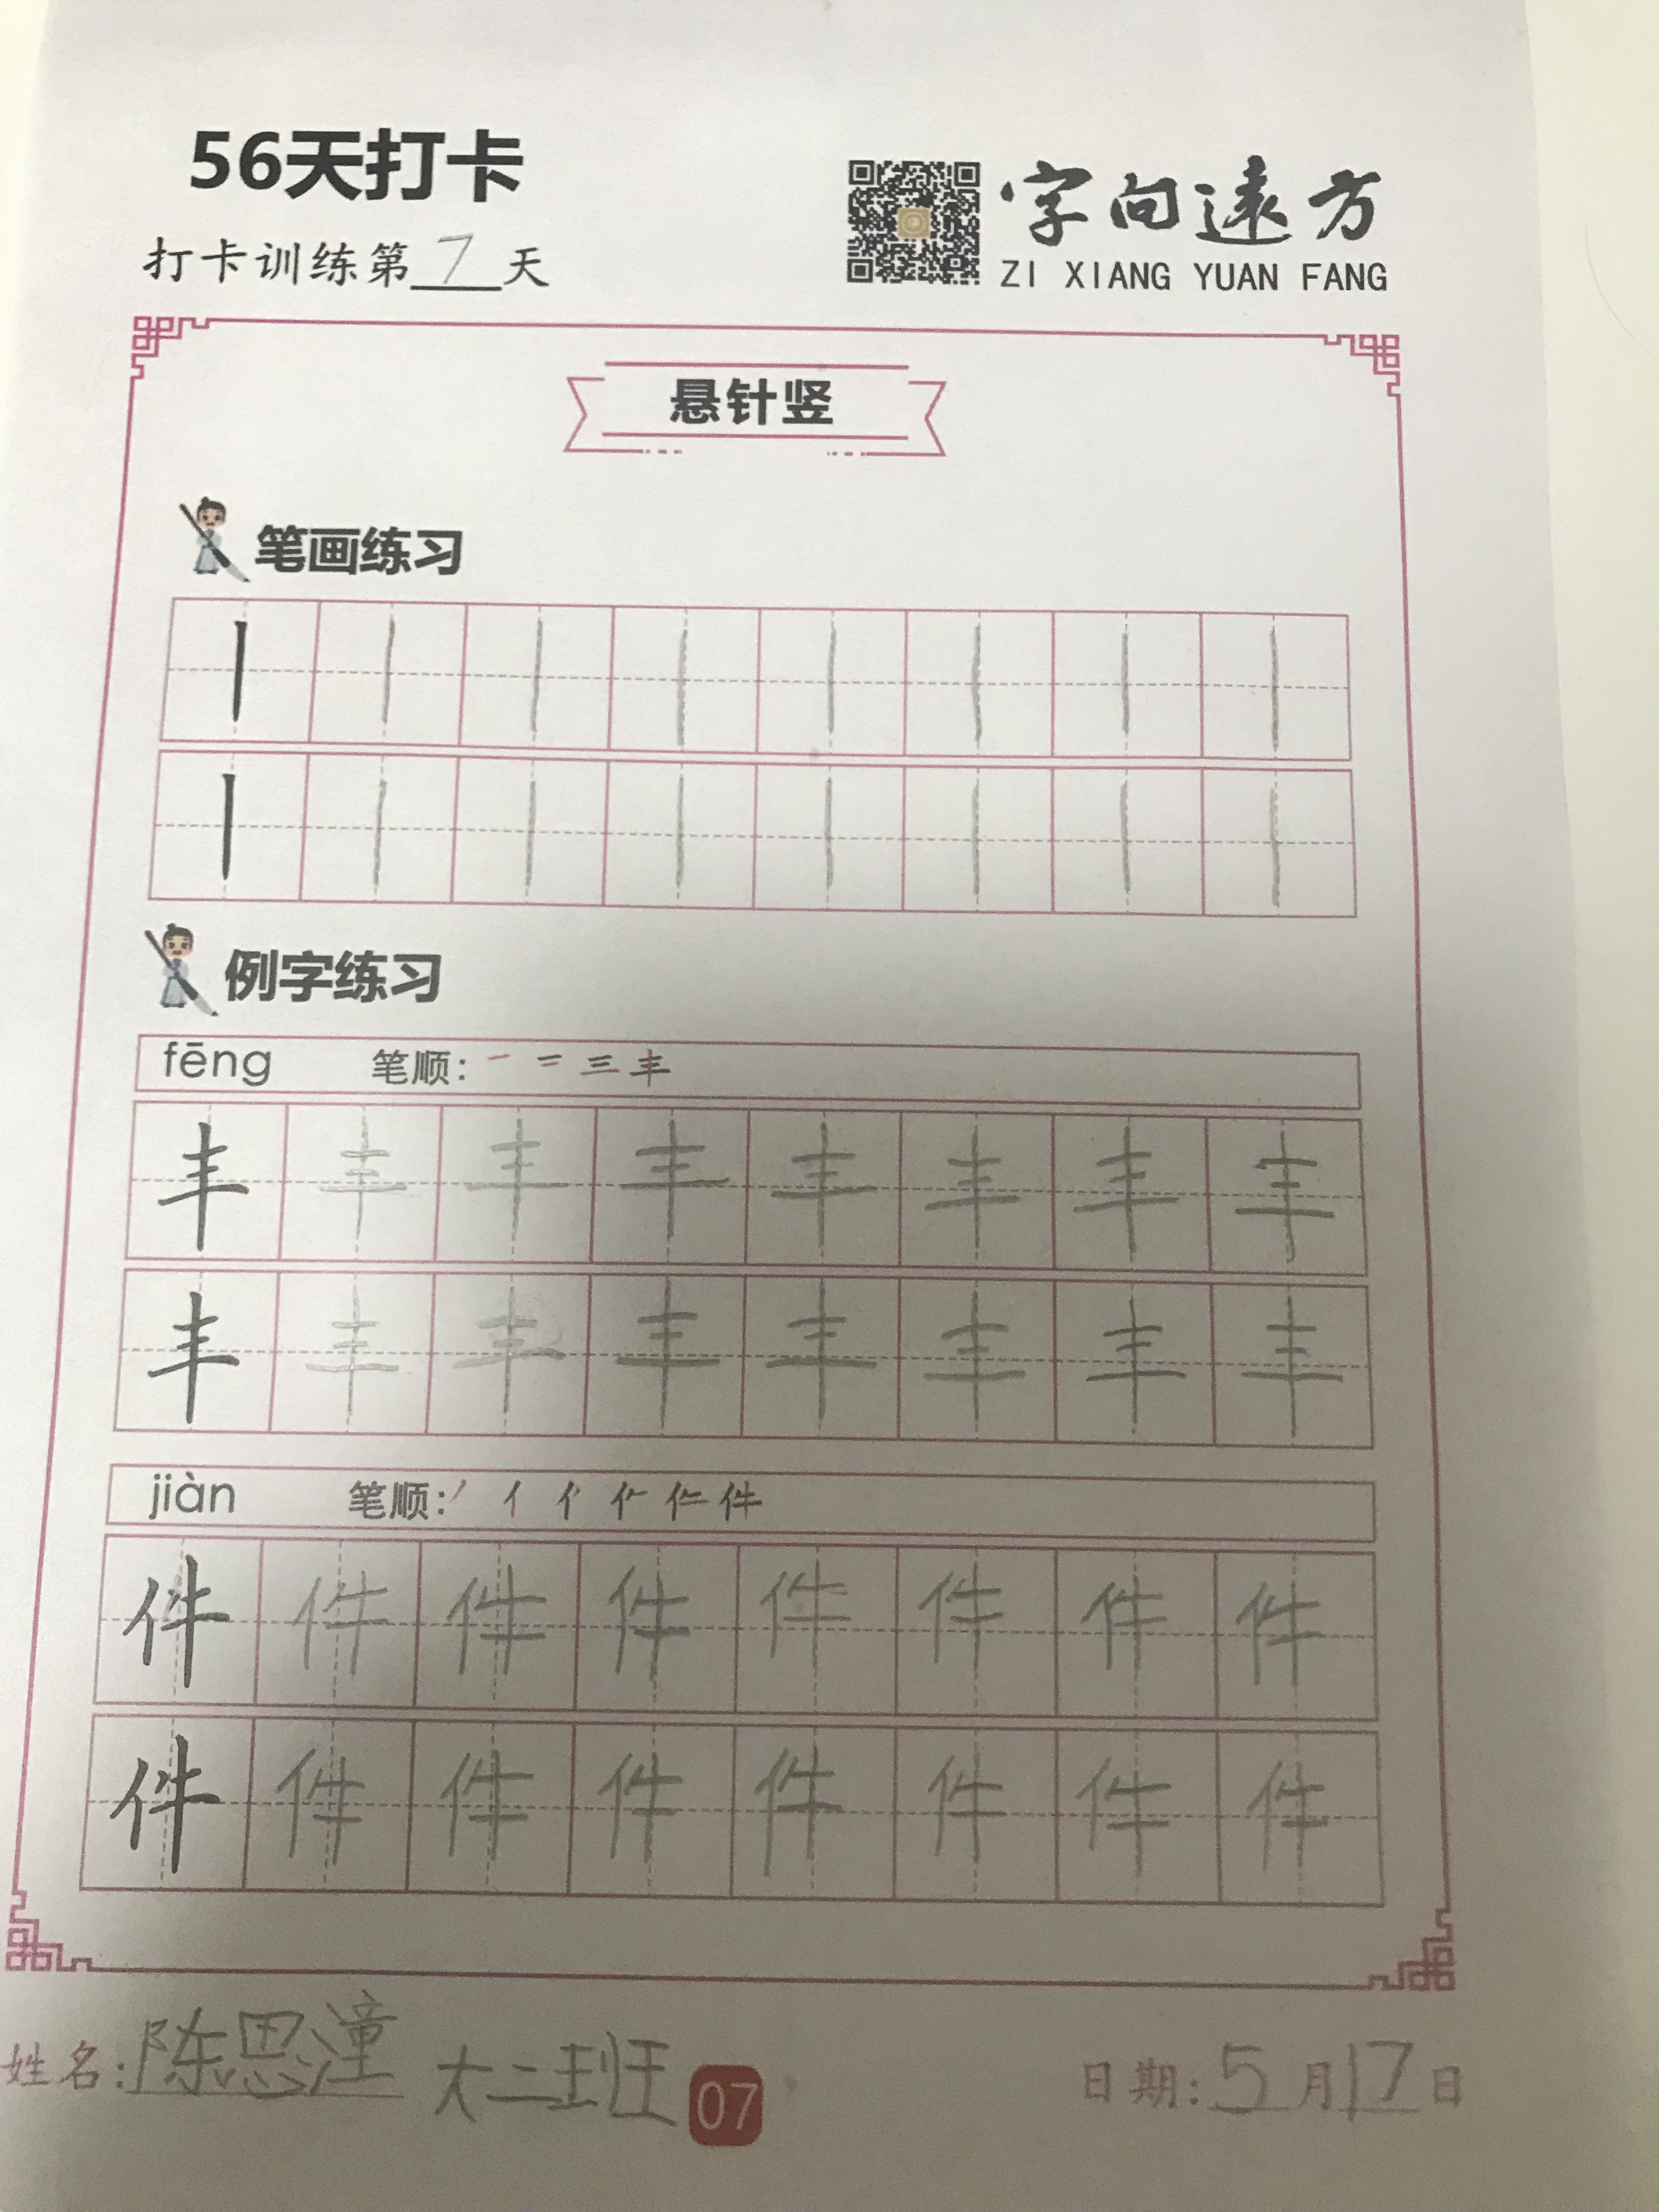 56天打卡
字向遠方
打卡训练第7天
ZI XIANG YUAN FANG
悬针竖
笔画练习
丨 丨 丨 丨 丨 丨 丨 丨
丨 丨 丨 丨 丨 丨 丨 丨
例字练习
fēng 笔顺: 一 二 三 丰
丰 丰 丰 丰 丰 丰 丰 丰
丰 丰 丰 丰 丰 丰 丰 丰
jiàn 笔顺: 丿 亻 仁 件
件 件 件 件 件 件 件 件
件 件 件 件 件 件 件 件
姓名:陈思潼 大二班 07 日期:5月17日